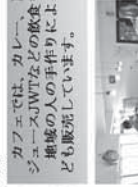 カフェでは、カレー、
ジュースJWTなどの飲食
地域の人の手作りによ
ども販売しています。